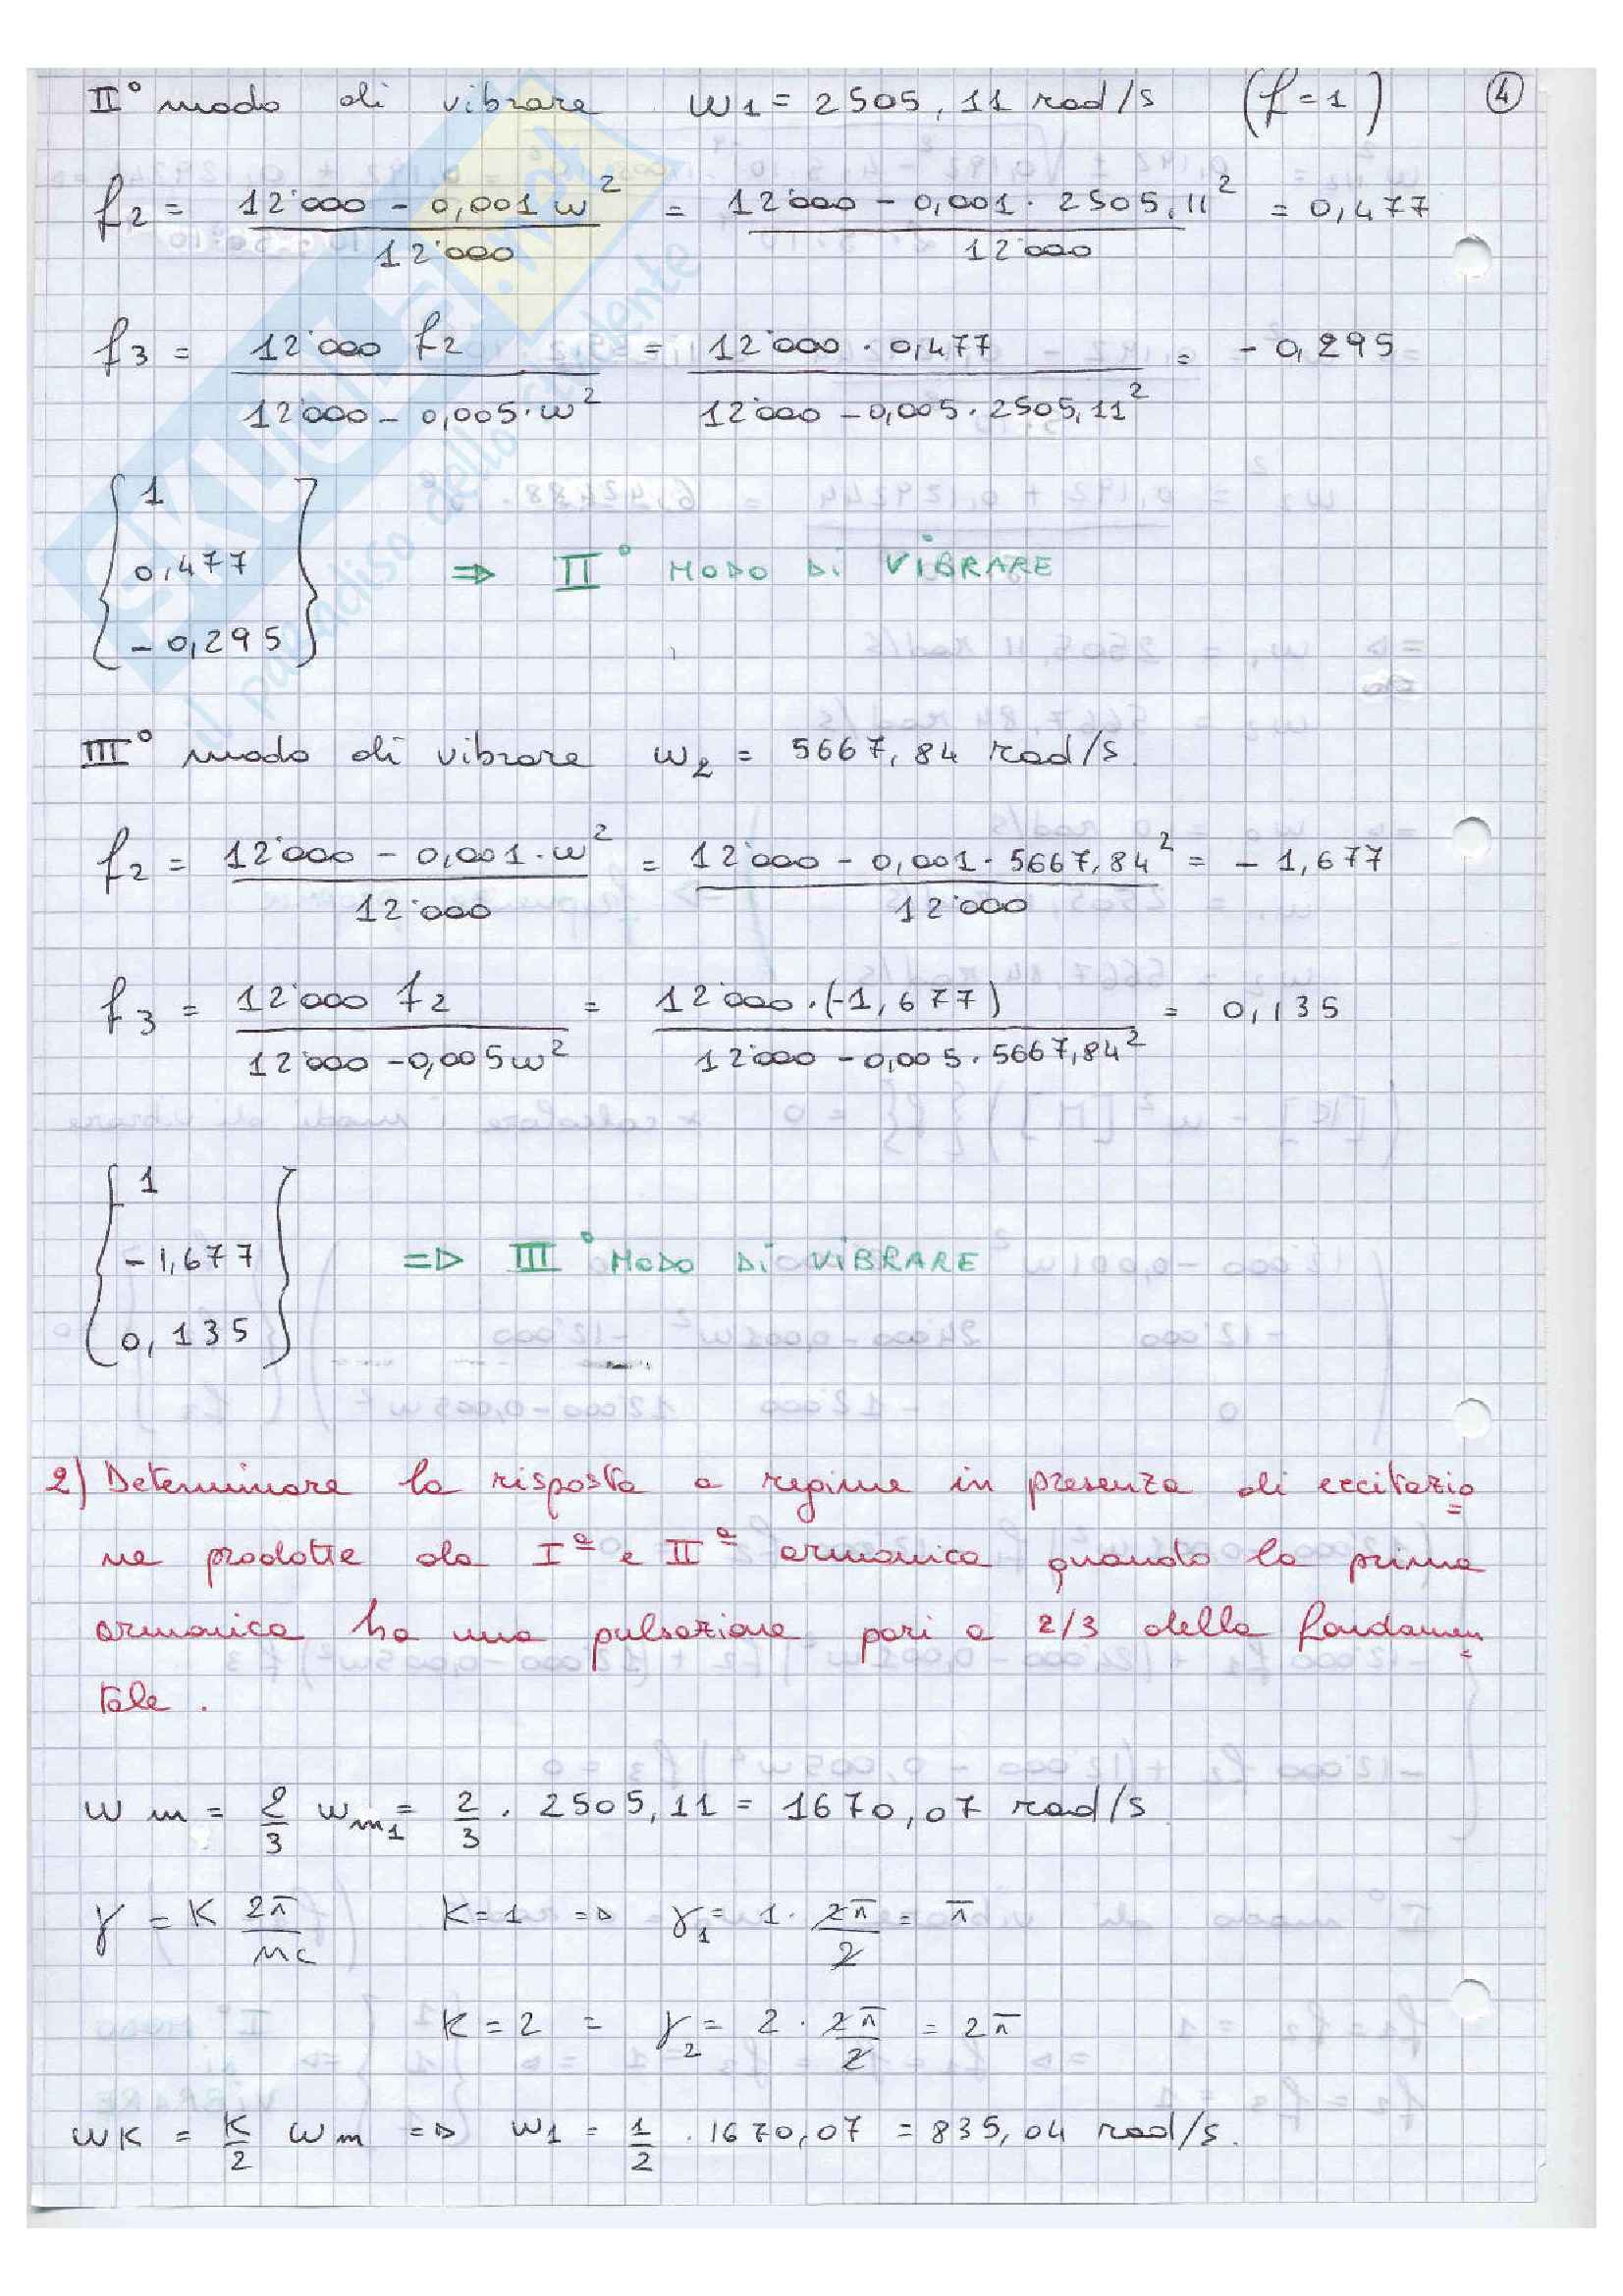 II° modo di vibrare ω1 = 2505,11 rad/s (f=1) 4
f2 = 12'000 - 0,001 ω² / 12'000 = 12'000 - 0,001 · 2505,11² / 12'000 = 0,477
f3 = 12'000 f2 / 12'000 - 0,005·ω² = 12'000 · 0,477 / 12'000 - 0,005 · 2505,11² = - 0,295
1
0,477 ⇒ II° MODO Di ViBRARE
- 0,295
III° modo di vibrare ω2 = 5667,84 rad/s.
f2 = 12'000 - 0,001·ω² / 12'000 = 12'000 - 0,001 · 5667,84² / 12'000 = - 1,677
f3 = 12'000 f2 / 12'000 - 0,005ω² = 12'000 · (-1,677) / 12'000 - 0,005 · 5667,84² = 0,135
1
- 1,677 ⇒ III° MODO Di ViBRARE
0,135
2) Determinare la risposta a regime in presenza di eccitazio=
ne prodotte da Iª e IIª armonica quando la prima
armonica ha una pulsazione pari a 2/3 della fondamen=
tale.
ωm = 2/3 ωm1 = 2/3 · 2505,11 = 1670,07 rad/s
γ = K 2π/mc K=1 ⇒ γ1 = 1 · 2π/2 = π
K=2 = γ2 = 2 · 2π/2 = 2π
ωK = K/2 ωm ⇒ ω1 = 1/2 · 1670,07 = 835,04 rad/s.
SKUOLA.net
il paradiso dello studente